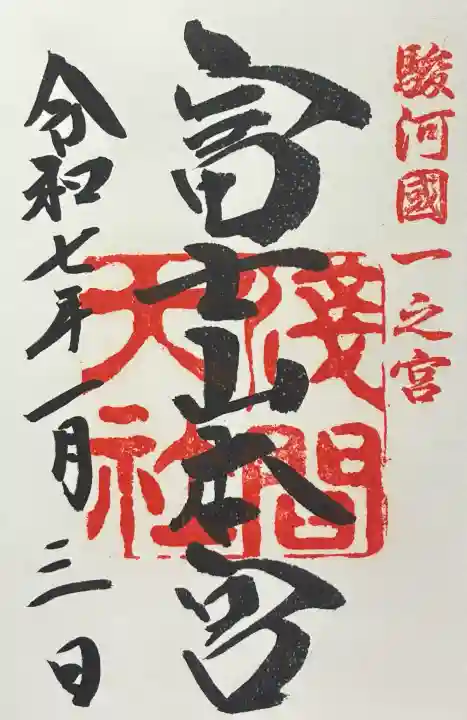 駿河國一之宮
富士山本宮
淺間
天社
令和七年一月三日